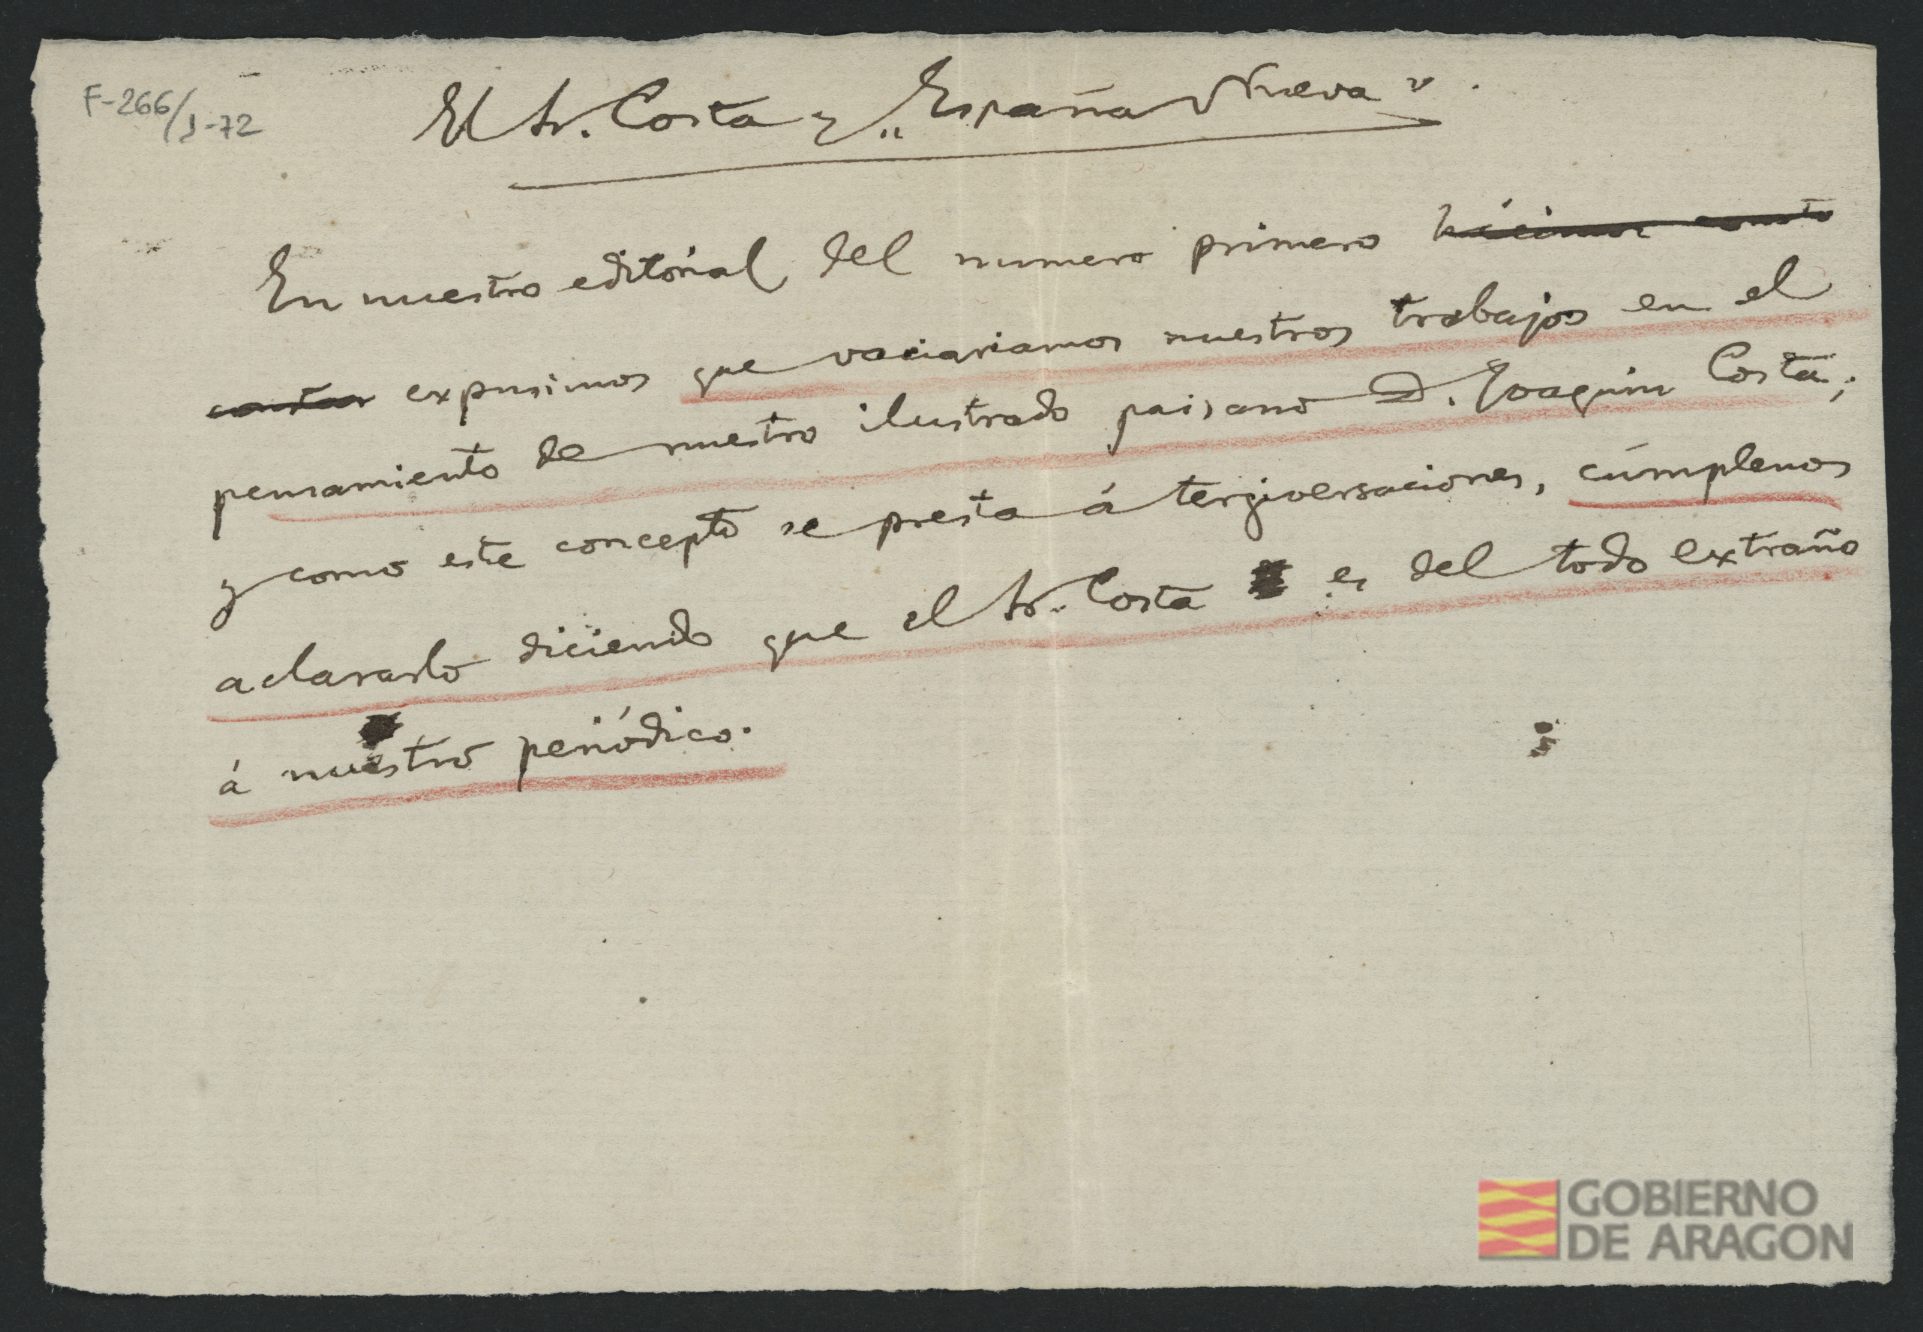 F-266/1-72
El Sr. Costa y "España Nueva".
En nuestro editorial del numero primero hicimos consta
constar expusimos que vaciariamos nuestros trabajos en el
pensamiento de nuestro ilustrado paisano D. Joaquin Costa;
y como este concepto se presta á tergiversaciones, cúmplenos
aclararlo diciendo que el Sr. Costa es del todo extraño
á nuestro periódico.
GOBIERNO
DE ARAGON